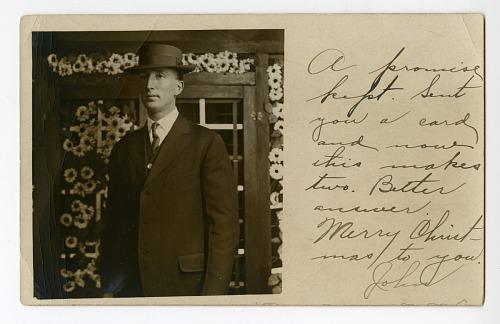 A promise
kept. Sent
you a card
and now
this makes
two. Better
answer.
Merry Christ-
mas to you.
John